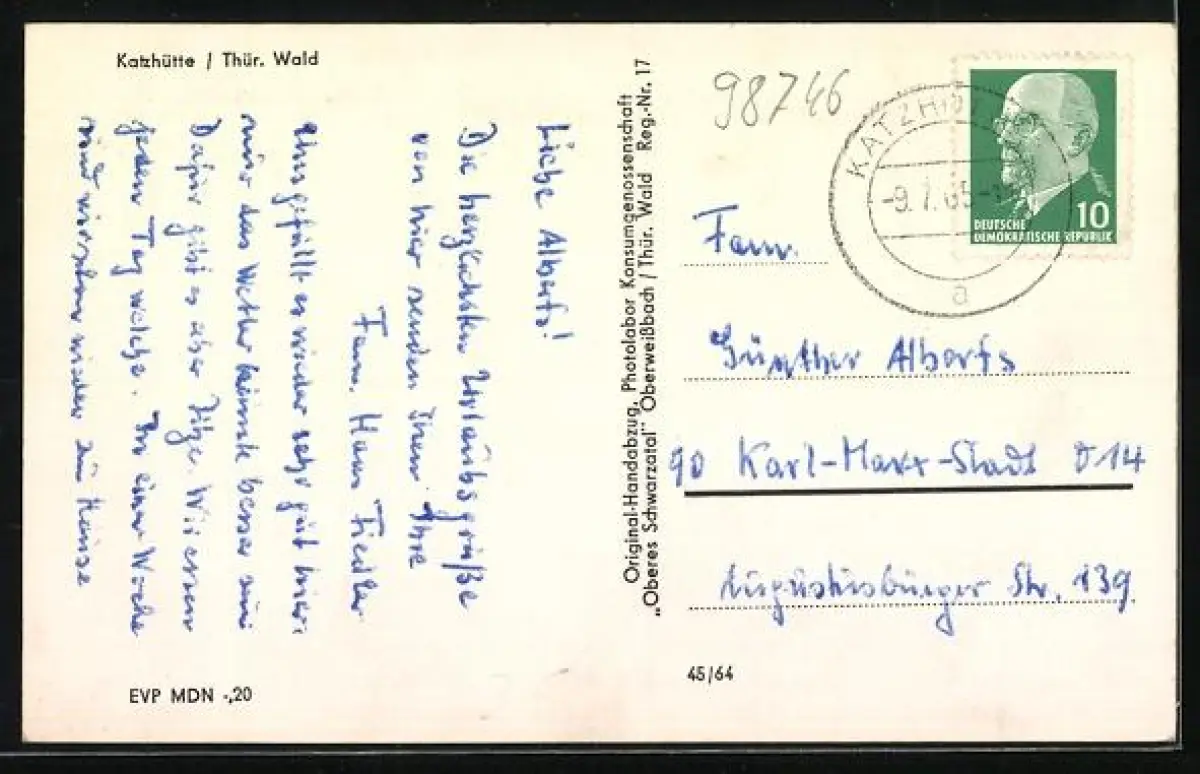 Katzhütte / Thür. Wald
Liebe Alberts!
Die herzlichsten Urlaubsgrüße
von hier senden Ihnen Ihre
Fam. Hans Fiedler
Uns gefällt es wieder sehr gut hier,
nur das Wetter könnte besser sein
Dafür gibt es aber Pilze. Wir essen
jeden Tag welche. In einer Woche
sind wir schon wieder zu Hause
EVP MDN -,20
Original-Handabzug, Photolabor Konsumgenossenschaft
„Oberes Schwarzatal" Oberweißbach / Thür. Wald Reg.-Nr. 17
98746
-9.7.65
a
10
DEUTSCHE
DEMOKRATISCHE REPUBLIK
Fam.
Günther Alberts
90 Karl-Marx-Stadt D 14
Augustusburger Str. 139
45/64